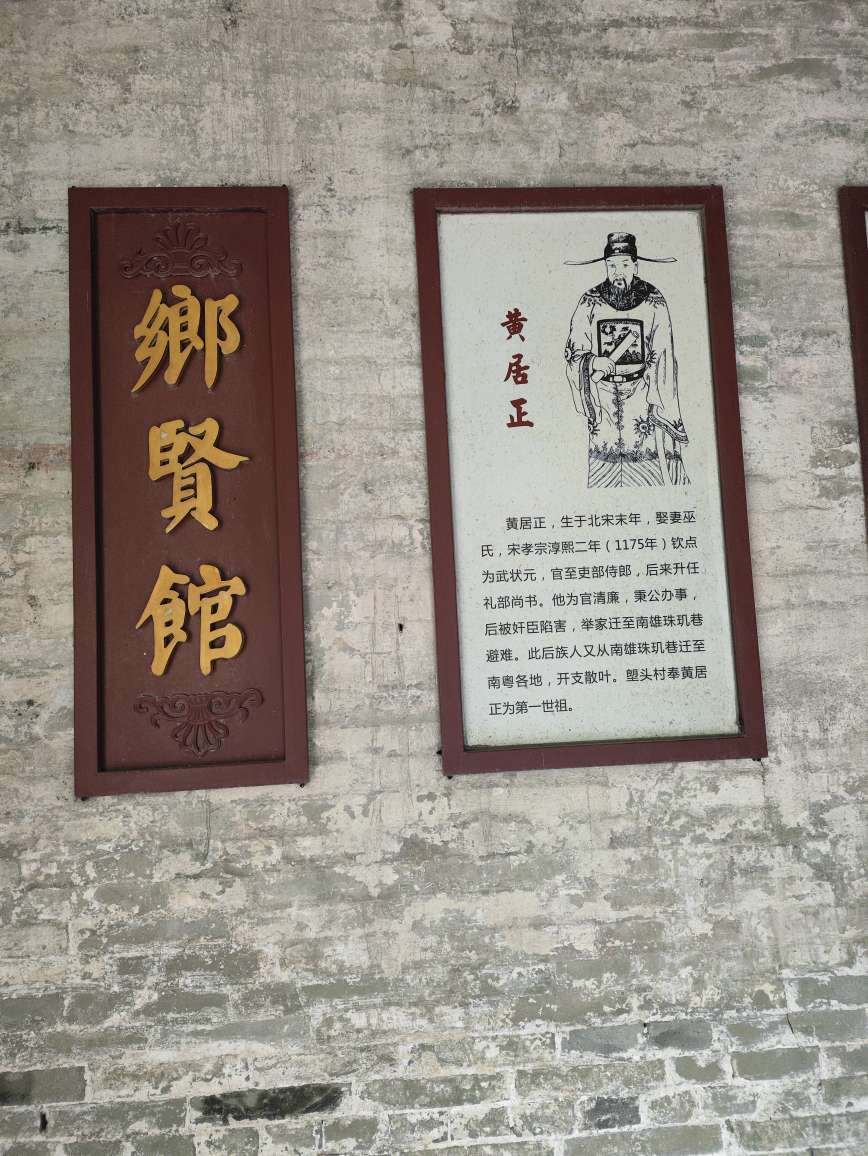 鄉賢館
黄居正
黄居正，生于北宋末年，娶妻巫
氏，宋孝宗淳熙二年（1175年）钦点
为武状元，官至吏部侍郎，后来升任
礼部尚书。他为官清廉，秉公办事，
后被奸臣陷害，举家迁至南雄珠玑巷
避难。此后族人又从南雄珠玑巷迁至
南粤各地，开支散叶。塱头村奉黄居
正为第一世祖。